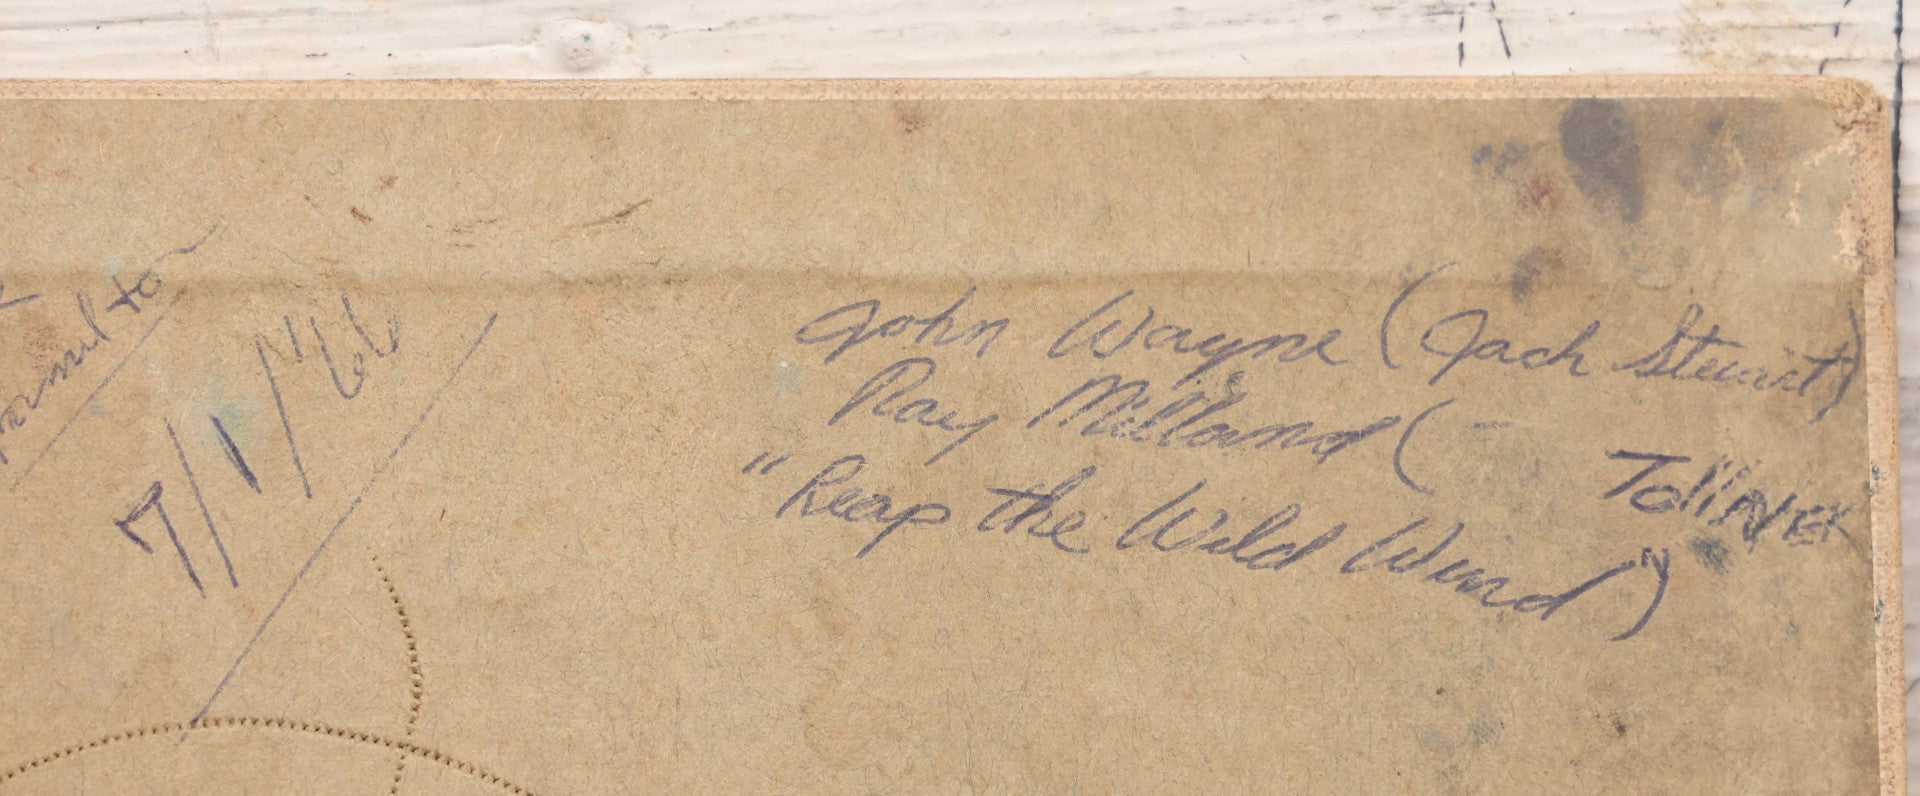 7/1/'66
John Wayne (Jack Stewart)
Ray Milland (- Tollinek
"Reap the Wild Wind")